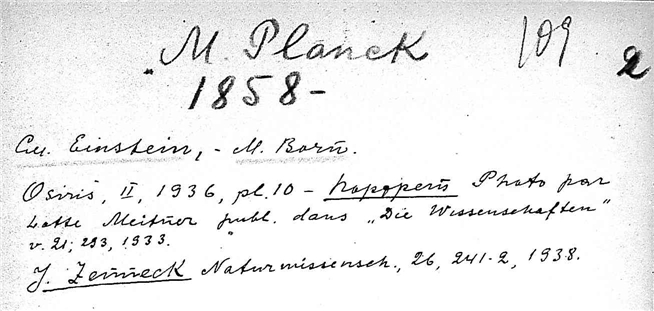 M. Planck 109 2
1858-
См. Einstein, - M. Born.
Osiris, II, 1936, pl. 10 - портрет Photo par
Lotte Meitner publ. dans „Die Wissenschaften"
v. 21; 293, 1933.
J. Zenneck Naturwissensch., 26, 241-2, 1938.